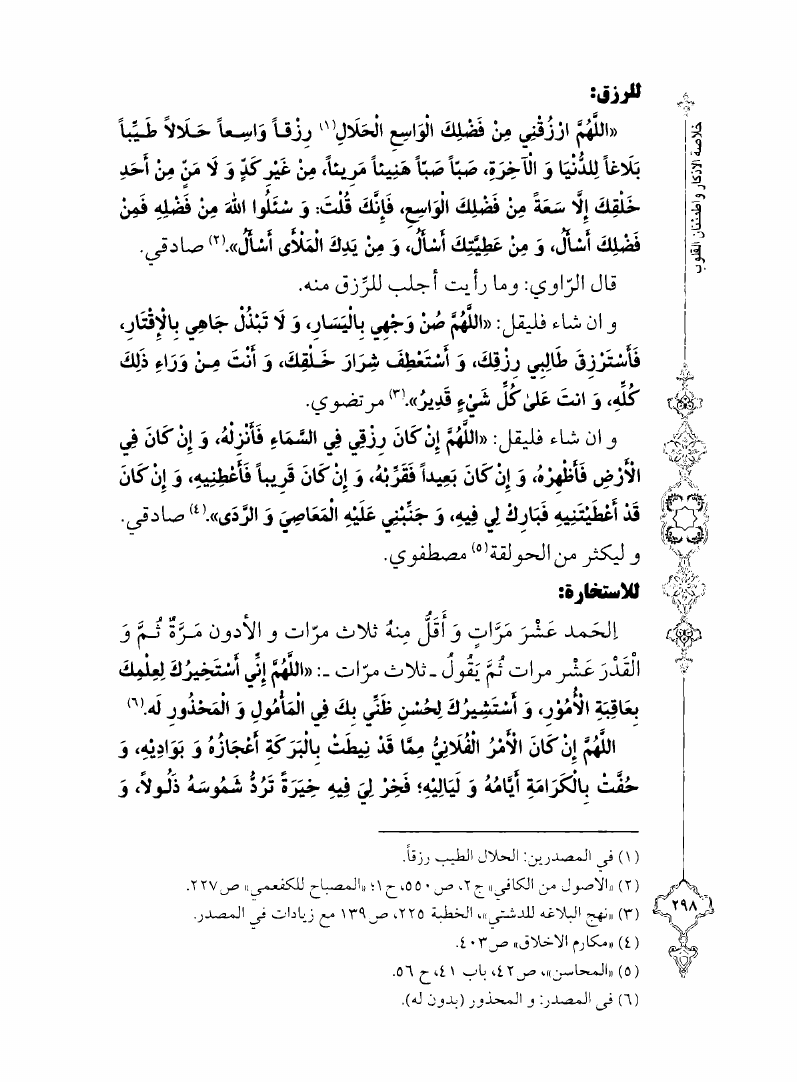 للرزق:
«اللَّهُمَّ ارْزُقْنِي مِنْ فَضْلِكَ الْوَاسِعِ الْحَلَالِ(١) رِزْقـاً وَاسِـعاً حَـلَالاً طَـيِّباً
بَلَاغاً لِلدُّنْيَا وَ الْآخِرَةِ، صَبّاً صَبّاً هَنِيئاً مَرِيئاً، مِنْ غَيْرِ كَدٍّ وَ لَا مَنٍّ مِنْ أَحَدِ
خَلْقِكَ إِلَّا سَعَةً مِنْ فَضْلِكَ الْوَاسِعِ، فَإِنَّكَ قُلْتَ: وَ سْئَلُوا اللهَ مِنْ فَضْلِهِ فَمِنْ
فَضْلِكَ أَسْأَلُ، وَ مِنْ عَطِيَّتِكَ أَسْأَلُ، وَ مِنْ يَدِكَ الْمَلْأَى أَسْأَلُ».(٢) صادقي.
قال الرّاوي: وما رأيت أجلب للرِّزق منه.
و ان شاء فليقل: «اللَّهُمَّ صُنْ وَجْهِي بِالْيَسَارِ، وَ لَا تَبْذُلْ جَاهِي بِالْإِقْتَارِ،
فَأَسْتَرْزِقَ طَالِبِي رِزْقِكَ، وَ أَسْتَعْطِفَ شِرَارَ خَـلْقِكَ، وَ أَنْتَ مِـنْ وَرَاءِ ذَلِكَ
كُلِّهِ، وَ انتَ عَلىٰ كُلِّ شَيْءٍ قَدِيرُ».(٣) مرتضوي.
و ان شاء فليقل: «اللَّهُمَّ إِنْ كَانَ رِزْقِي فِي السَّمَاءِ فَأَنْزِلْهُ، وَ إِنْ كَانَ فِي
الْأَرْضِ فَأَظْهِرْهُ، وَ إِنْ كَانَ بَعِيداً فَقَرِّبْهُ، وَ إِنْ كَانَ قَرِيباً فَأَعْطِنِيهِ، وَ إِنْ كَانَ
قَدْ أَعْطَيْتَنِيهِ فَبَارِكْ لِي فِيهِ، وَ جَنِّبْنِي عَلَيْهِ الْمَعَاصِيَ وَ الرَّدَى».(٤) صادقي.
و ليكثر من الحولقة(٥) مصطفوي.
للاستخارة:
اِلحَمد عَشْرَ مَرَّاتٍ وَ أَقَلُّ مِنهُ ثلاث مرّات و الأدون مَـرَّةٌ ثُـمَّ وَ
الْقَدْرَ عَشْر مرات ثُمَّ يَقُولُ ـ ثلاث مرّات ـ: «اللَّهُمَّ إِنِّي أَسْتَخِيرُكَ لِعِلْمِكَ
بِعَاقِبَةِ الْأُمُوْرِ، وَ أَسْتَشِيرُكَ لِحُسْنِ ظَنِّي بِكَ فِي الْمَأْمُولِ وَ الْمَحْذُورِ لَه.(٦)
اللَّهُمَّ إِنْ كَانَ الْأَمْرُ الْفُلَانِيُّ مِمَّا قَدْ نِيطَتْ بِالْبَرَكَةِ أَعْجَازُهُ وَ بَوَادِيْهِ، وَ
حُفَّتْ بِالْكَرَامَةِ أَيَّامُهُ وَ لَيَالِيْهِ؛ فَخِرْ لِيَ فِيهِ خِيَرَةً تَرُدُّ شَمُوسَهُ ذَلُـولاً، وَ
(١) في المصدرين: الحلال الطيب رزقاً.
(٢) «الاصول من الكافي» ج٢، ص٥٥٠، ح١؛ «المصباح للكفعمي» ص٢٢٧.
(٣) «نهج البلاغه للدشتي»، الخطبة ٢٢٥، ص١٣٩ مع زيادات في المصدر.
(٤) «مكارم الاخلاق» ص٤٠٣.
(٥) «المحاسن»، ص٤٢، باب ٤١، ح ٥٦.
(٦) في المصدر: و المحذور (بدون له).
خلاصة الاذكار و اطمئنان القلوب
٢٩٨